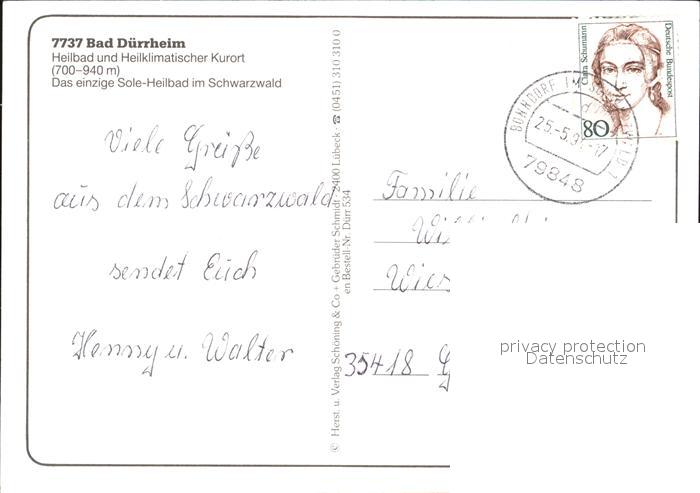 7737 Bad Dürrheim
Heilbad und Heilklimatischer Kurort
(700–940 m)
Das einzige Sole-Heilbad im Schwarzwald
Viele Grüße
aus dem Schwarzwald
sendet Euch
Henny u. Walter
© Herst. u. Verlag Schöning & Co + Gebrüder Schmidt · 2400 Lübeck · ☎ (0451) 310 310 0
en Bestell-Nr. Dürr 534
Clara Schumann
Deutsche Bundespost
80
BONNDORF IM
25.-5.
-17
79848
Familie
35418
privacy protection
Datenschutz